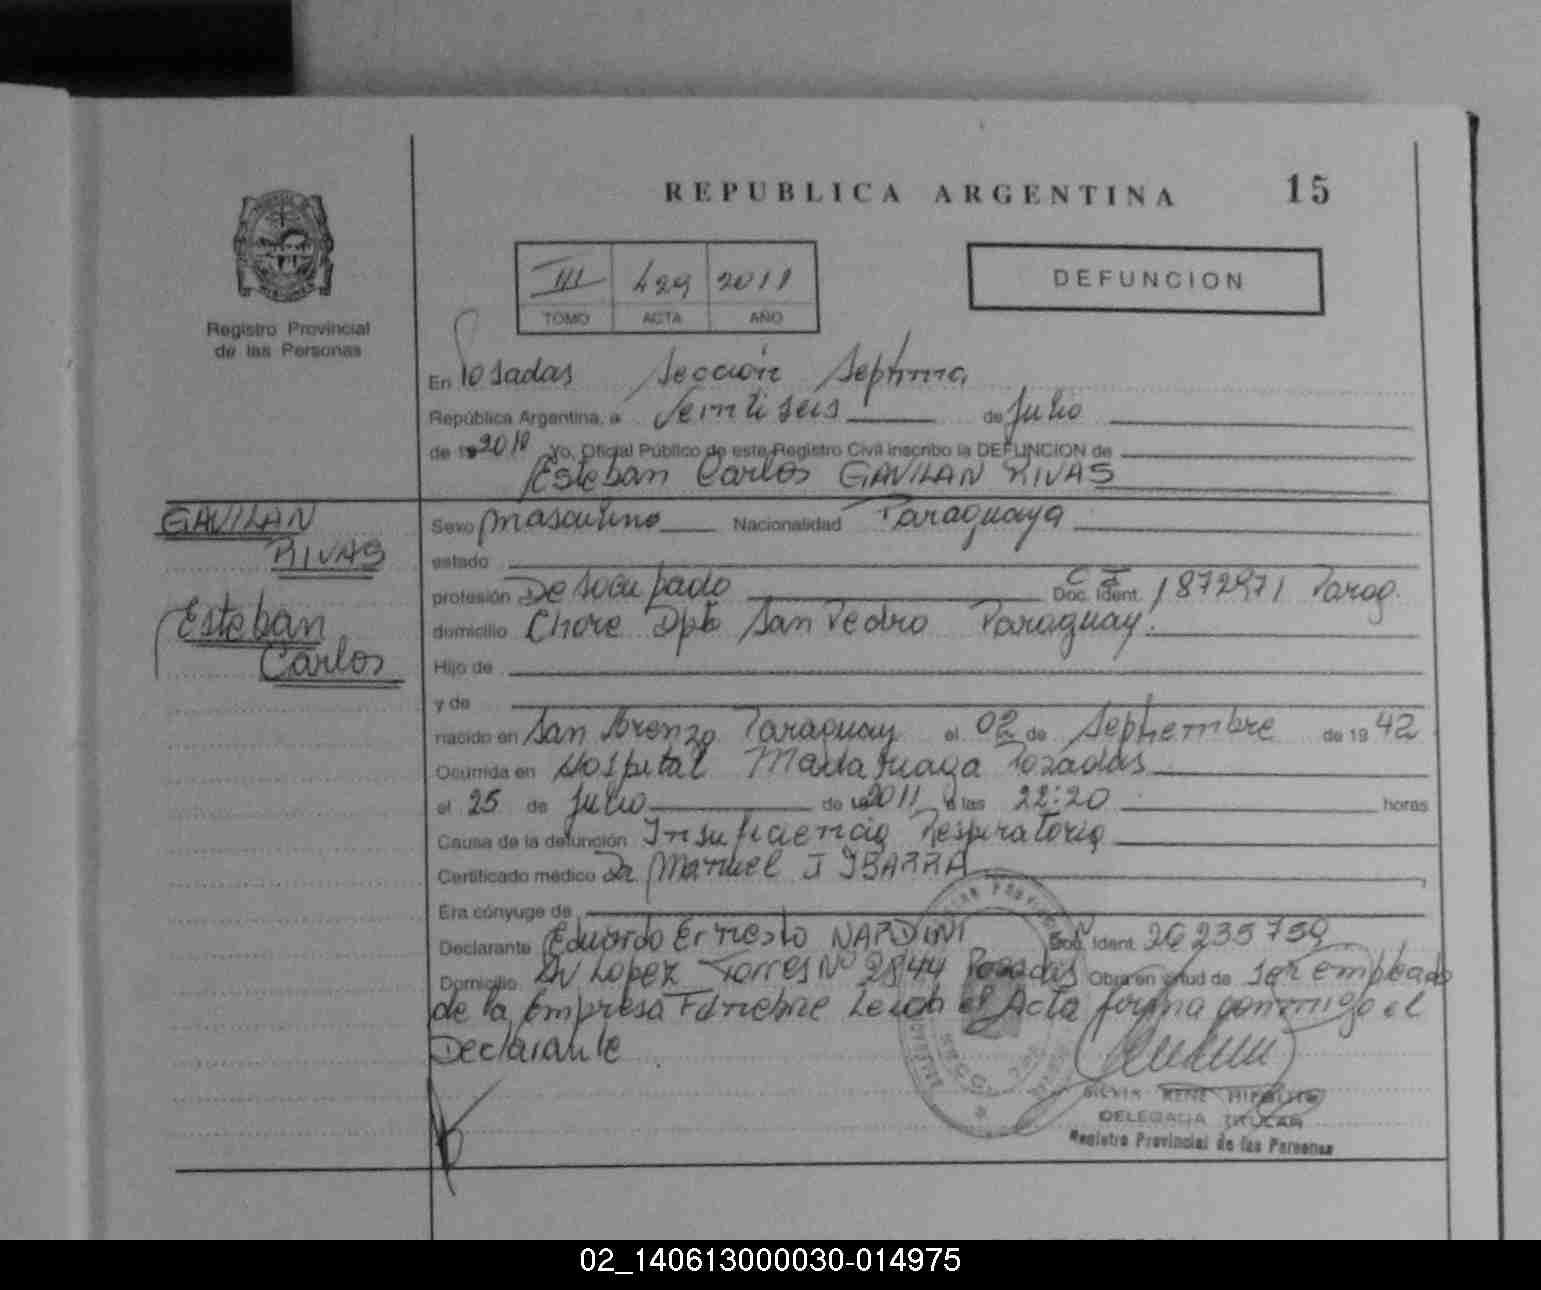 REPUBLICA ARGENTINA 15
III 429 2011
TOMO ACTA AÑO
DEFUNCION
Registro Provincial
de las Personas
En Posadas Sección Septima
República Argentina, a Veintiseis de Julio
de 19 2011 Yo, Oficial Público de este Registro Civil inscribo la DEFUNCION de
Esteban Carlos GAVILAN RIVAS
GAVILAN
RIVAS
Esteban
Carlos
Sexo masculino Nacionalidad Paraguaya
estado
profesión Desocupado C I Doc. Ident. 1872971 Parag.
domicilio Chore Dpto San Pedro Paraguay.
Hijo de
y de
nacido en San Lorenzo Paraguay el 02 de Septiembre de 19 42
Ocurrida en Hospital Madariaga Posadas
el 25 de Julio de 2011 a las 22:20 horas
Causa de la defunción Insuficiencia Respiratoria
Certificado médico Dr Manuel J IBARRA
Era cónyuge de
Declarante Eduardo Ernesto NARDINI Doc. Ident. 20235759
Domicilio Av Lopez Torres Nº 2844 Posadas Obra en virtud de ser empleado
de la Empresa Funebre Leida el Acta firma conmigo el
Declarante
SILVIA RENE HIPOLITO
DELEGADA TITULAR
Registro Provincial de las Personas
02_140613000030-014975